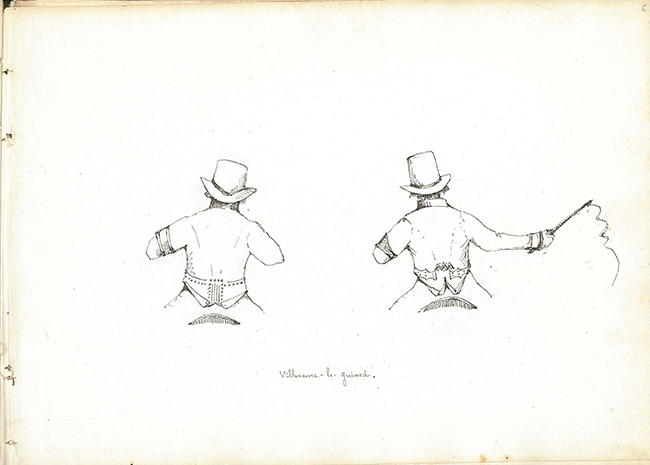 6
Villeneuve-le-guiard.